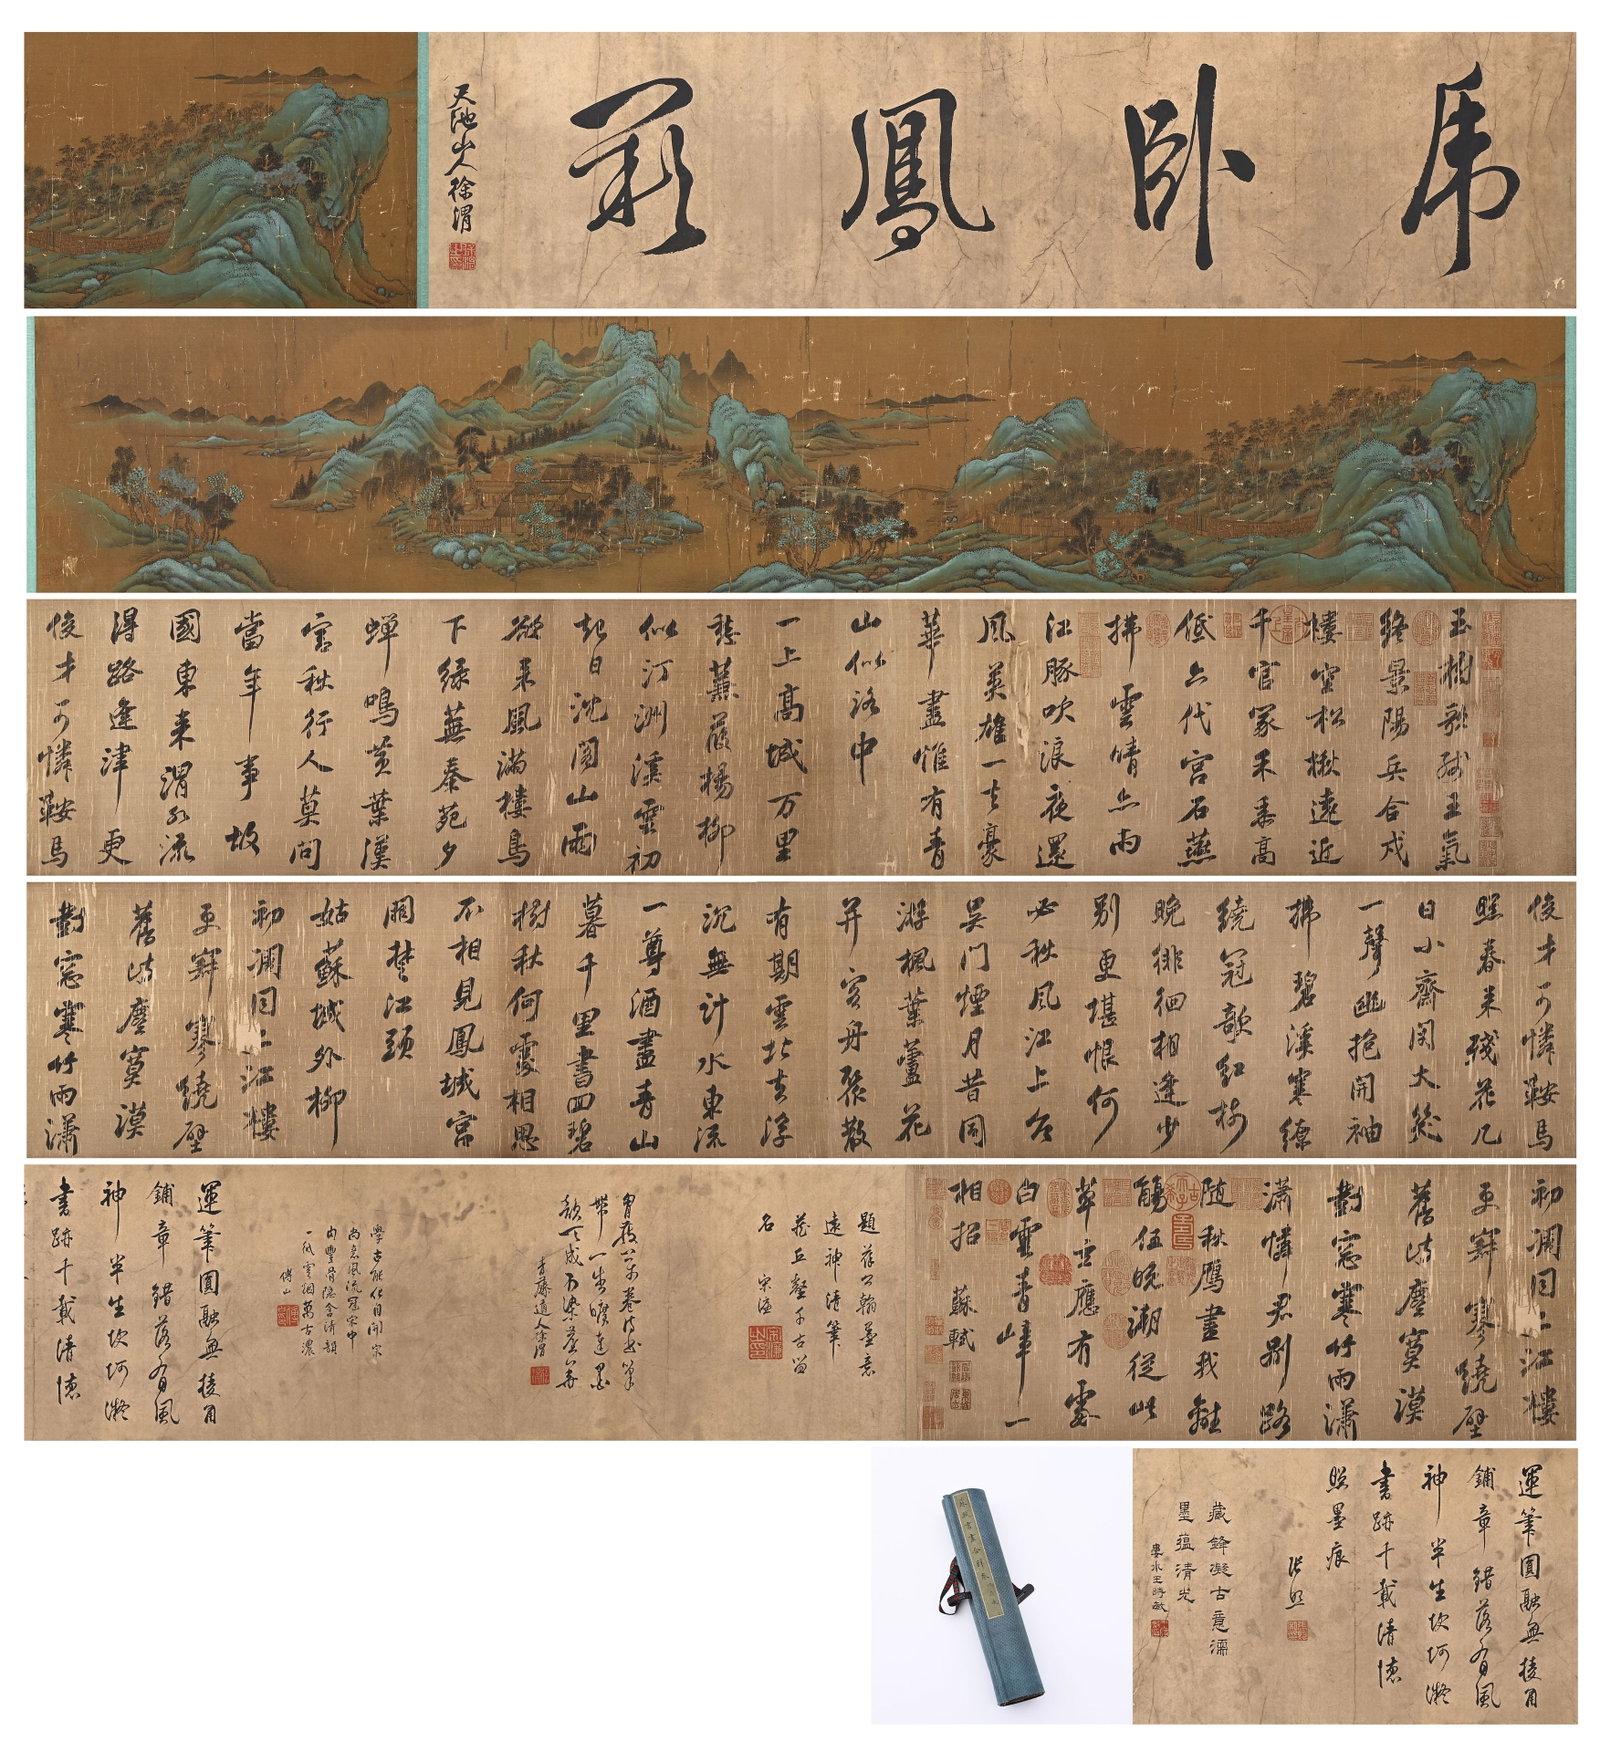 虎卧鳳闕
天池山人徐渭
玉樹歌殘王氣
終景陽兵合戍
樓空松楸遠近
千官冢禾黍高
低六代宮石燕
拂雲晴亦雨
江豚吹浪夜還
風英雄一去豪
華盡惟有青
山似洛中
一上高城万里
愁蒹葭楊柳
似汀洲溪雲初
起日沈閣山雨
欲来風滿樓鳥
下綠蕪秦苑夕
蟬鳴黄葉漢
宮秋行人莫問
當年事故
國東来渭水流
得路逢津更
俊才可憐鞍馬
俊才可憐鞍馬
照春来殘花几
日小齋閉大筵
一聲幽抱開袖
拂碧溪寒繚
繞冠欹紅樹
晚徘徊相逢少
別更堪恨何
必秋風江上台
吳門煙月昔同
游楓葉蘆花
并客舟聚散
有期雲北去浮
沉無計水東流
一尊酒盡青山
暮千里書回碧
樹秋何處相思
不相見鳳城宮
闕楚江頭
姑蘇城外柳
初凋同上江樓
更寂寥繞壁
舊詩塵寞漠
對窗寒竹雨瀟
初凋同上江樓
更寂寥繞壁
舊詩塵寞漠
對窗寒竹雨瀟
瀟憐君別路
随秋鴈盡我離
觴任晚潮從此
草玄應有處
白雲青嶂一
相招 蘇軾
題蘇公翰墨意
遠神清筆
花丘壑千古留
名 宋濂
曾藏萬卷詩書筆
帶一生曠達墨
韻天成不染塵
青藤道人徐渭
學古能化自開宗
尚意風流冠宋中
内豐骨隱含清韻
一紙雲烟萬古濃
傅山
運筆圓融無棱角
鋪章錯落有風
神半生坎坷凝
書跡千載清德
運筆圓融無棱角
鋪章錯落有風
神半生坎坷凝
書跡千載清德
照墨痕
張照
藏鋒凝古意濡
墨蘊清光
婁水王時敏